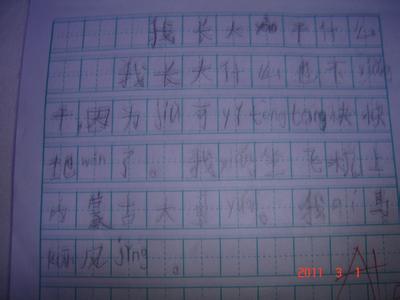 我长大和干什么
我长大什么也不xiǎng
干,因为jiù可yǐ tòng tòng快快
地wán了。我xiǎng坐飞机上
内蒙古大草yuán。我qí马
kàn风jǐng。
2011 3 1